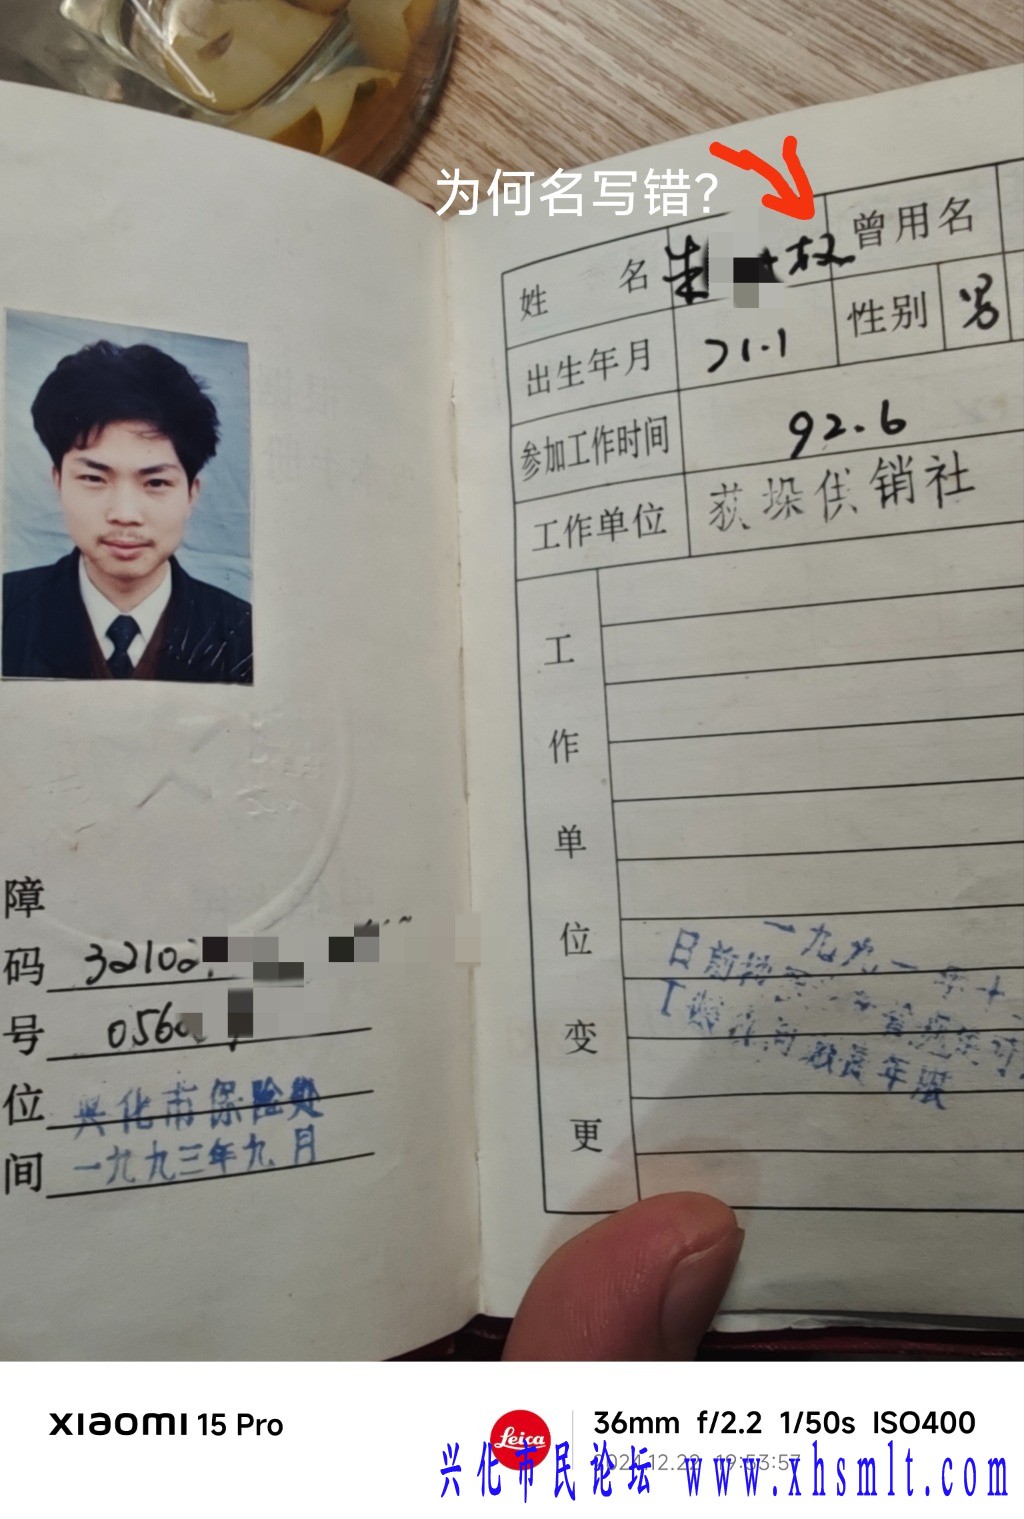 为何名写错?
姓名 朱 权 曾用名
出生年月 71.1 性别 男
参加工作时间 92.6
工作单位 荻垛供销社
工作单位变更
一九九一年十
日前
年度
障
码 32102
号 0560
位 兴化市保险处
间 一九九三年九月
XIAOMI 15 Pro
Leica
36mm f/2.2 1/50s ISO400
2024.12.22 19:53:57
兴化市民论坛 www.xhsmlt.com